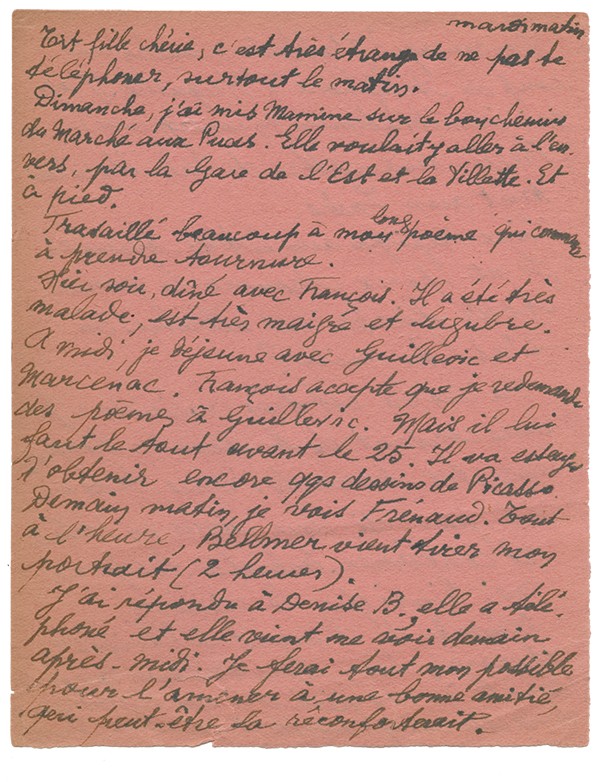 mardi matin
fille chérie, c'est très étrange de ne pas te
téléphoner, surtout le matin.
Dimanche, j'ai mis Mamine sur le bon chemin
du Marché aux Puces. Elle voulait y aller à l'en-
vers, par la Gare de l'Est et la Villette. Et
à pied.
Travaillé beaucoup à mon long poème qui commence
à prendre tournure.
Hier soir, dîné avec François. Il a été très
malade, est très maigre et lugubre.
A midi, je déjeune avec Guillevic et
Marcenac. François accepte que je redemande
des poèmes à Guillevic. Mais il lui
faut le tout avant le 25. Il va essayer
d'obtenir encore qqs dessins de Picasso.
Demain matin, je vois Frénaud. Tout
à l'heure, Bellmer vient tirer mon
portrait (2 heures).
J'ai répondu à Denise B. elle a télé-
phoné et elle vient me voir demain
après-midi. Je ferai tout mon possible
pour l'amener à une bonne amitié,
qui peut-être la réconforterait.